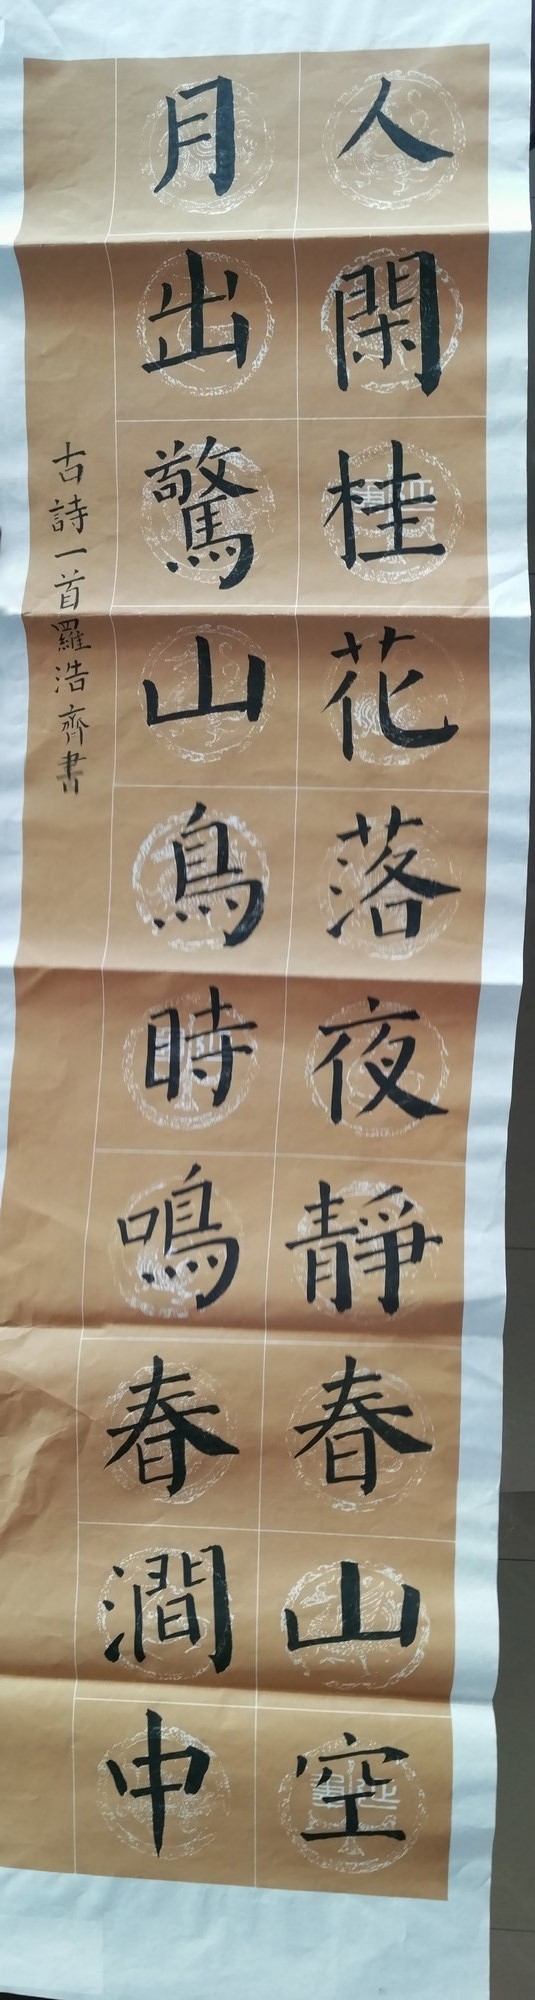 人閑桂花落夜靜春山空
月出驚山鳥時鳴春澗中
古詩一首羅浩齊書